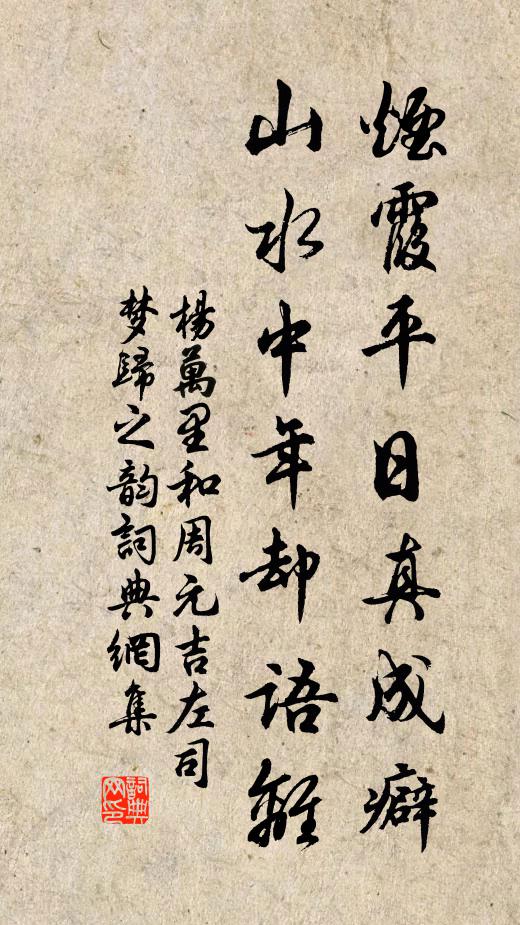 煙霞平日真成癖
山水中年却語離
楊萬里和周元吉左司
梦歸之韵詞典網集
詞典网印